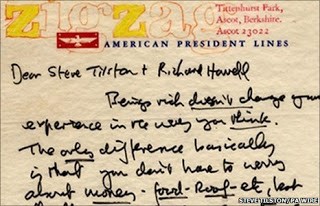 zigzag
Tittenhurst Park,
Ascot, Berkshire.
Ascot 23022
AMERICAN PRESIDENT LINES
Dear Steve Tilston + Richard Howell
Being rich doesn't change your
experience in the way you think.
The only difference basically
is that you don't have to worry
about money - food - Roof - etc, but
STEVE TILSTON/PA WIRE